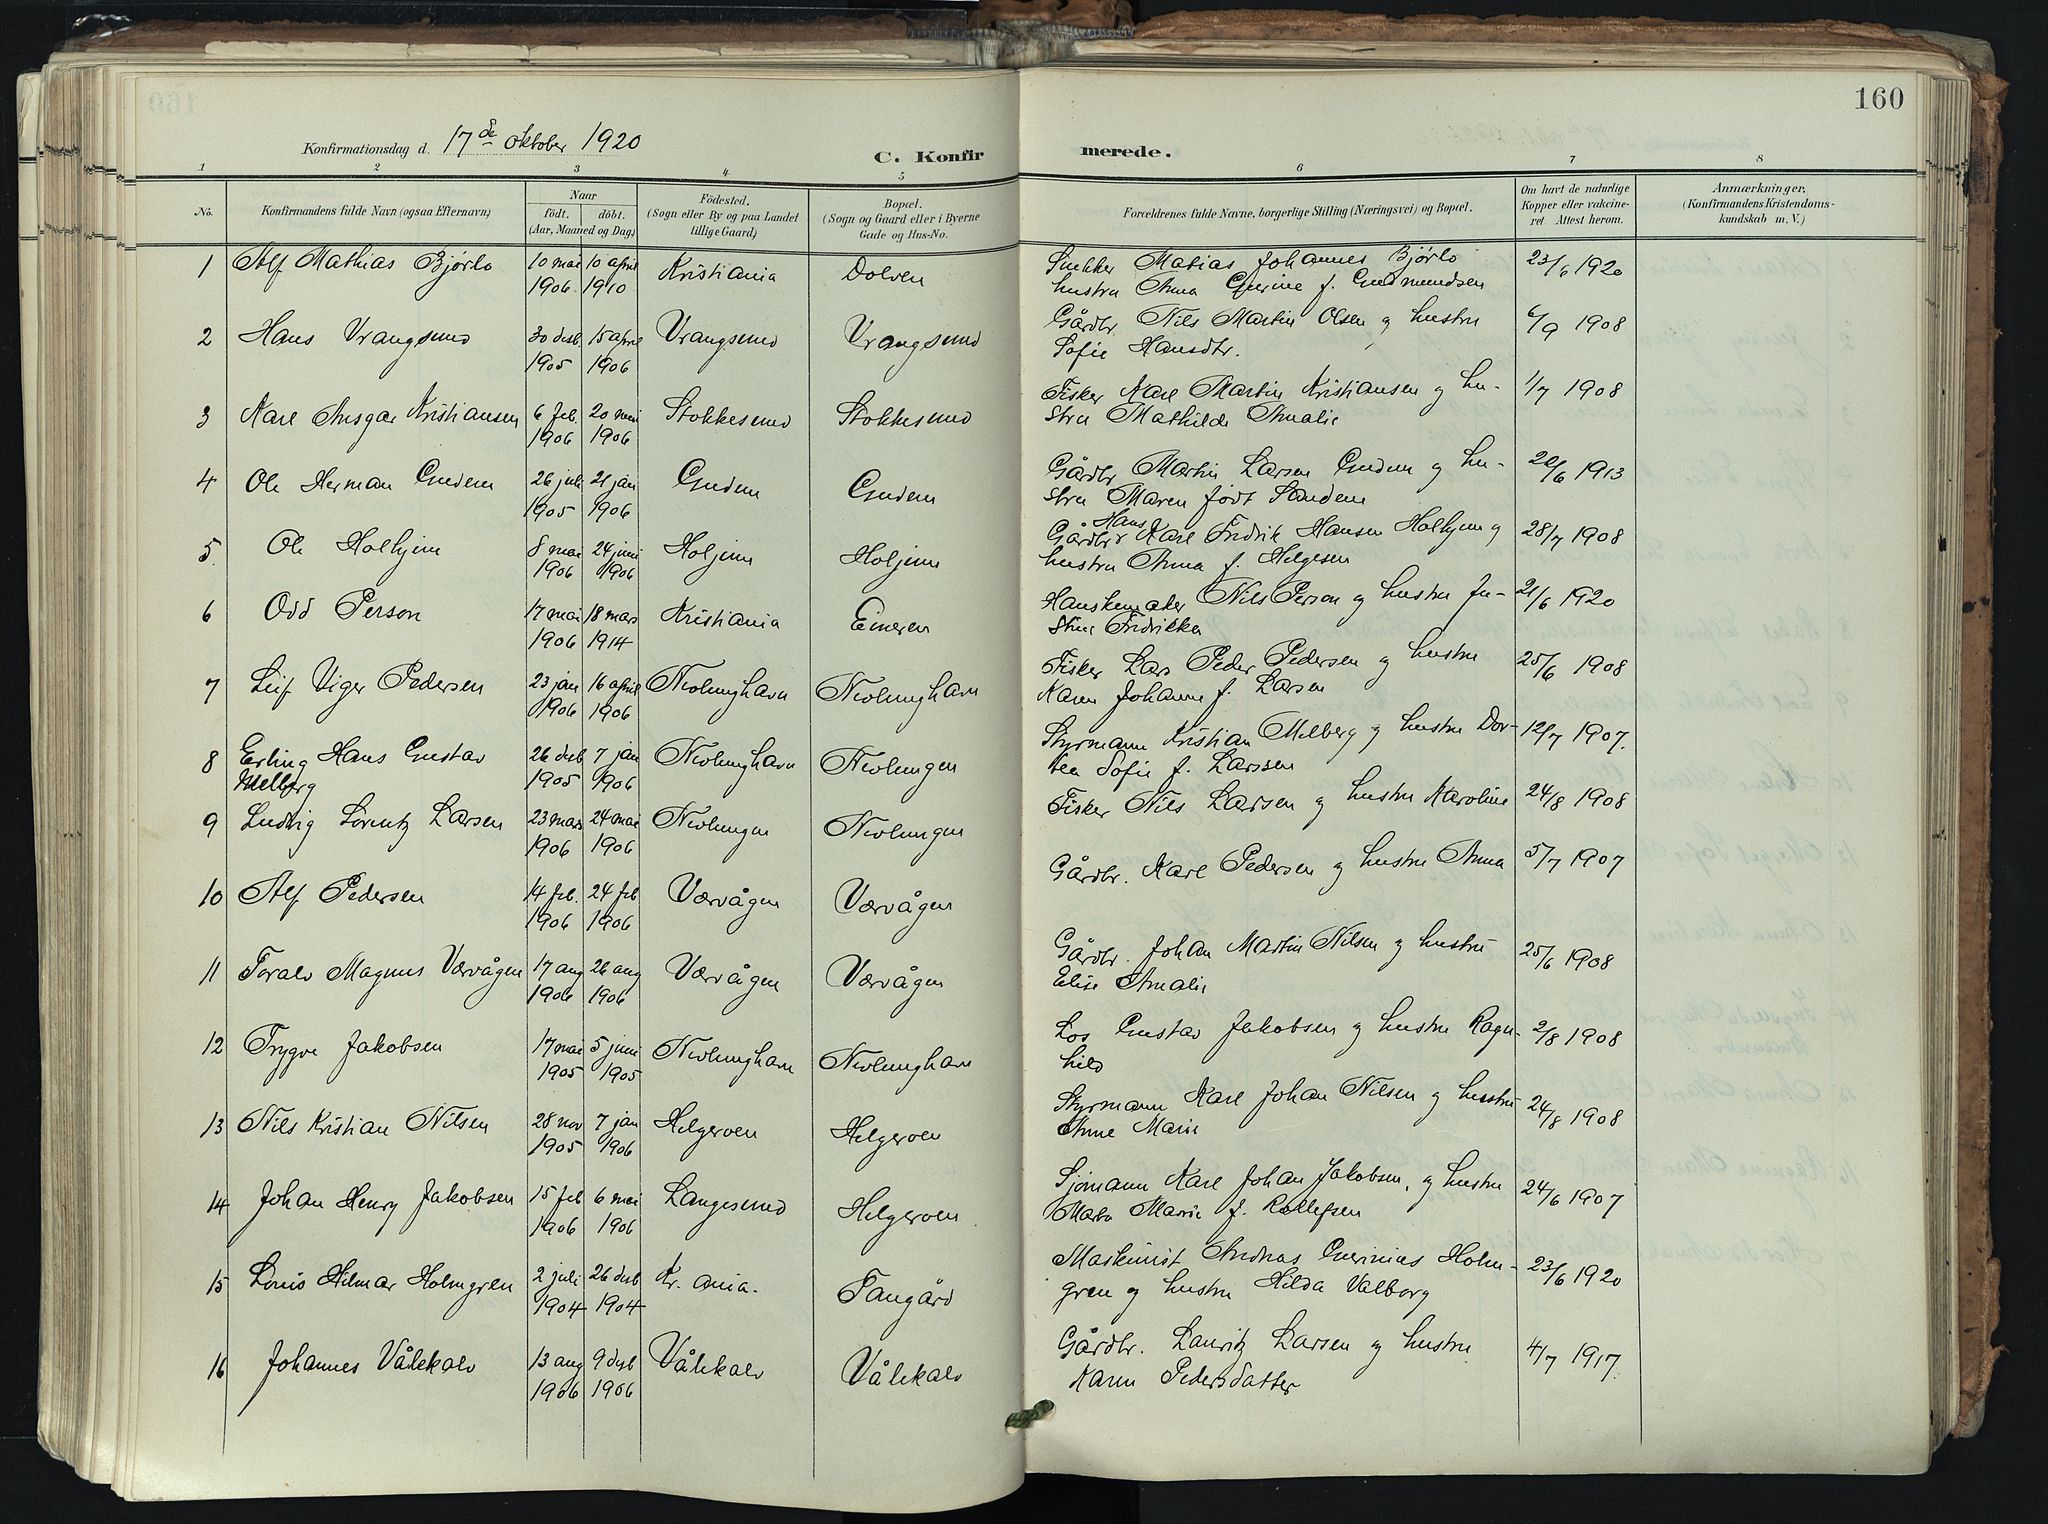 160
Konfirmationsdag d. 17de oktober 1920
C. Konfirmerede.
1 2 3 4 5 6 7 8
No.
Konfirmandens fulde Navn (ogsaa Efternavn)
Naar
født. døbt.
(Aar, Maaned og Dag)
Fødested.
(Sogn eller By og paa Landet
tillige Gaard)
Bopæl.
(Sogn og Gaard eller i Byerne
Gade og Hus-No.
Forældrenes fulde Navne, borgerlige Stilling (Næringsvei) og Bopæl.
Om havt de naturlige
Kopper eller vakcine-
ret. Attest herom.
Anmærkninger.
(Konfirmandens Kristendoms-
kundskab m. V.)
1 Alf Mathias Bjørlo 10 mai 10 april Kristiania Dolven Snekker Matias Johannes Bjørlo 23/6 1920
1906 1910 hustru Anna Gurine f. Gudmundsen
2 Hans Vrangsund 30 desb. 15 april Vrangsund Vrangsund Gårdbr. Nils Martin Olsen og hustru 6/9 1908
1905 1906 Sofie Hansdtr.
3 Karl Ansgar Kristiansen 6 feb. 20 mai Stokkesund Stokkesund Fisker Karl Martin Kristiansen og hu- 1/7 1908
1906 1906 stru Mathilde Amalie
4 Ole Herman Gudem 26 juli 21 jan Gudem Gudem Gårdbr Martin Larsen Gudem og hu- 22/6 1913
1905 1906 stru Maren født Sandem
5 Ole Holhjem 8 mai 24 juni Holjem Holjem Gårdbr Hans Karl Fredrik Hansen Holhjem og 28/7 1908
1906 1906 hustru Anna f. Helgesen
6 Odd Person 17 mai 18 mars Kristiania Eineren Hanskemaker Nils Person og hustru Ju- 21/6 1920
1906 1914 stine Fredrikke
7 Leif Viger Pedersen 23 jan 16 april Nevlunghavn Nevlunghavn Fisker Lars Peder Pedersen og hustru 25/6 1908
1906 1906 Karen Johanne f. Larsen
8 Erling Hans Gustav 26 desb 7 jan Nevlunghavn Nevlungen Styrmann Kristian Melberg og hustru Dor- 12/7 1907.
Melberg 1905 1906 tea Sofie f. Larssen
9 Ludvig Lorentz Larsen 23 mars 24 mai Nevlungen Nevlungen Fisker Nils Larsen og hustru Karoline 24/8 1908
1906 1906
10 Alf Pedersen 14 feb. 24 feb Værvågen Værvågen Gårdbr. Karl Pedersen og hustru Anna 5/7 1907
1906 1906
11 Toralv Magnus Værvågen 17 aug 26 aug Værvågen Værvågen Gårdbr. Johan Martin Nilsen og hustru 25/6 1908
1906 1906 Elise Amalie
12 Trygve Jakobsen 17 mai 5 juni Nevlunghavn Nevlunghavn Los Gustav Jakobsen og hustru Ragn- 2/8 1908
1905 1905 hild
13 Nils Kristian Nilsen 28 nov 7 jan Helgeroen Helgeroen Styrmann Karl Johan Nilsen og hustru 24/8 1908
1905 1906 Anne Marie
14 Johan Henry Jakobsen 15 feb 6 mai Langesund Helgeroen Sjømann Karl Johan Jakobsen, og hustru 24/6 1907
1906 1906 Marta Marie f. Rollefsen
15 Louis Hilmar Holmgren 2 juli 26 desb Kr.ania. Fangård Maskinist Andreas Guerinius Holm- 23/6 1920
1904 1904 gren og hustru Hilda Valborg
16 Johannes Vålekalv 13 aug 9 desb Vålekalv Vålekalv Gårdbr. Lauritz Larsen og hustru 4/7 1917.
1906 1906 Karen Pedersdatter